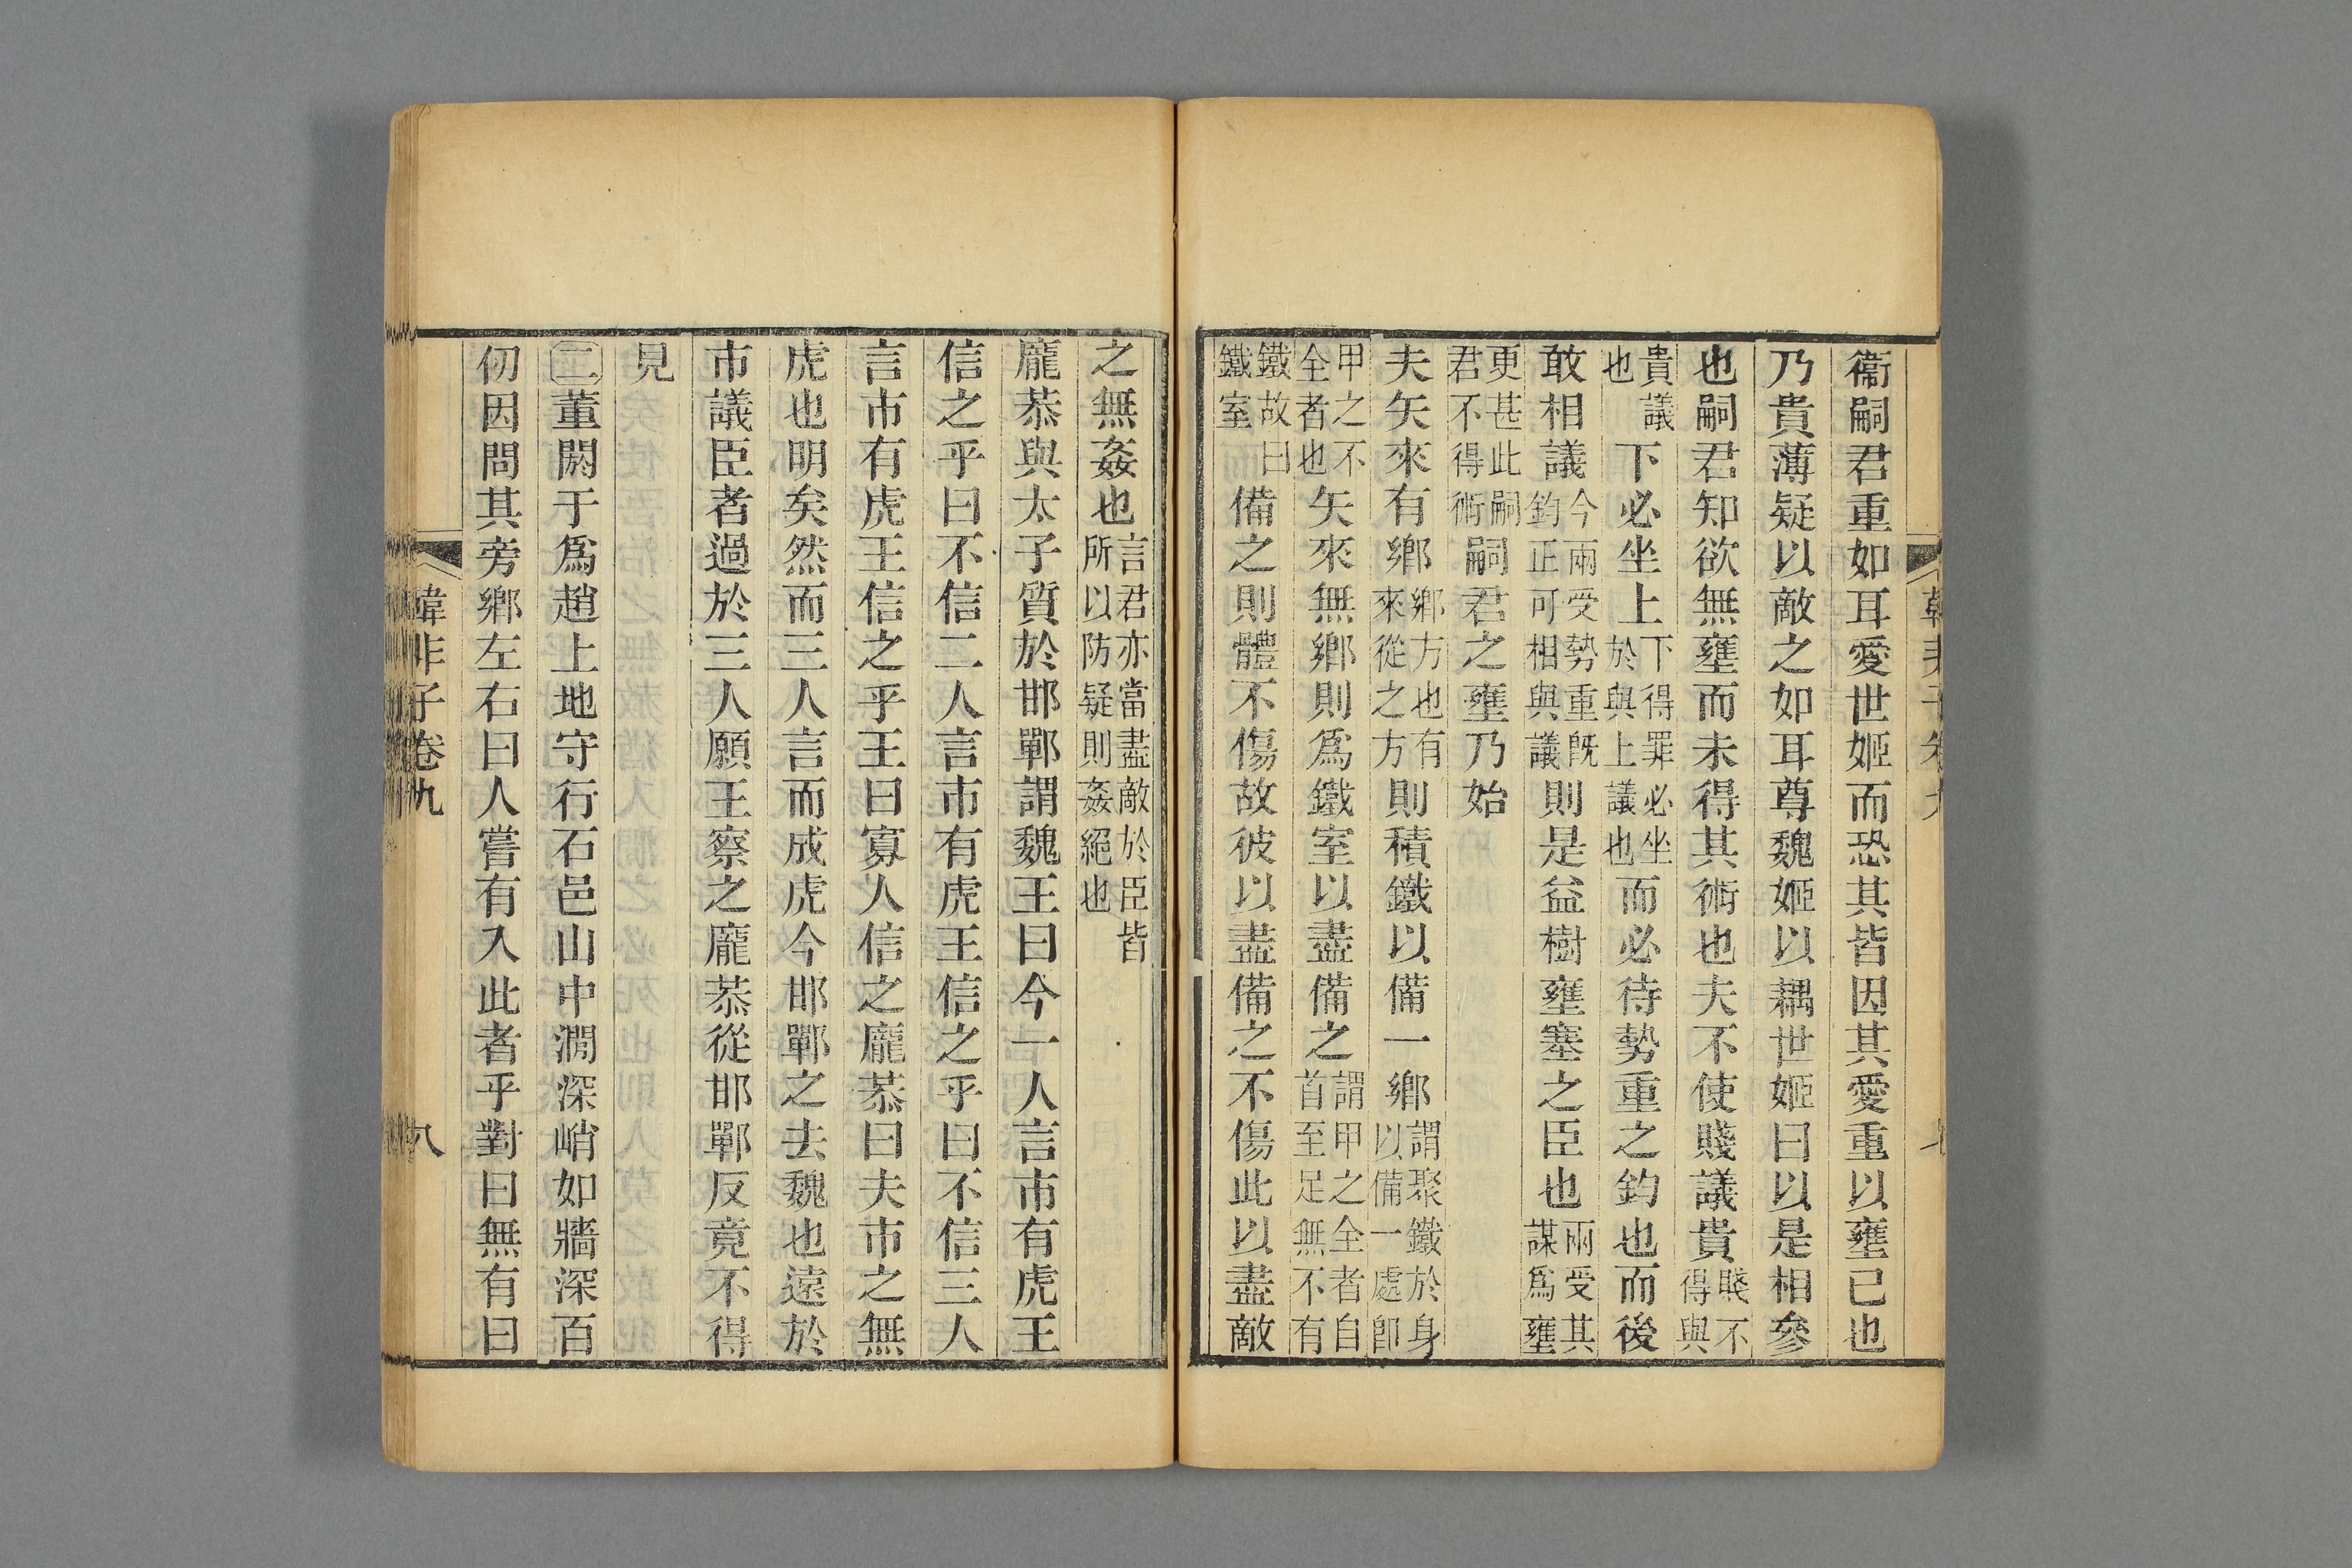 衞嗣君重如耳愛世姬而恐其皆因其愛重以壅己也
乃貴薄疑以敵之如耳尊魏姬以耦世姬曰以是相參
也嗣君知欲無壅而未得其術也夫不使賤議貴賤不得與
貴議也下必坐上下得罪必坐於與上議也而必待勢重之鈞也而後
敢相議今兩受勢重旣鈞正可相與議則是益樹壅塞之臣也兩受其謀爲壅
更甚此嗣君不得術嗣君之壅乃始
夫矢來有鄉鄉方也有來從之方則積鐵以備一鄉謂聚鐵於身以備一處卽
甲之不全者也矢來無鄉則爲鐵室以盡備之謂甲之全者自首至足無不有
鐵故曰鐵室備之則體不傷故彼以盡備之不傷此以盡敵
之無姦也言君亦當盡敵於臣皆所以防疑則姦絕也
龐恭與太子質於邯鄲謂魏王曰今一人言市有虎王
信之乎曰不信二人言市有虎王信之乎曰不信三人
言市有虎王信之乎王曰寡人信之龐恭曰夫市之無
虎也明矣然而三人言而成虎今邯鄲之去魏也遠於
市議臣者過於三人願王察之龐恭從邯鄲反竟不得
見
二董閼于爲趙上地守行石邑山中澗深峭如牆深百
仞因問其旁鄉左右曰人嘗有入此者乎對曰無有曰
韓非子卷九
八